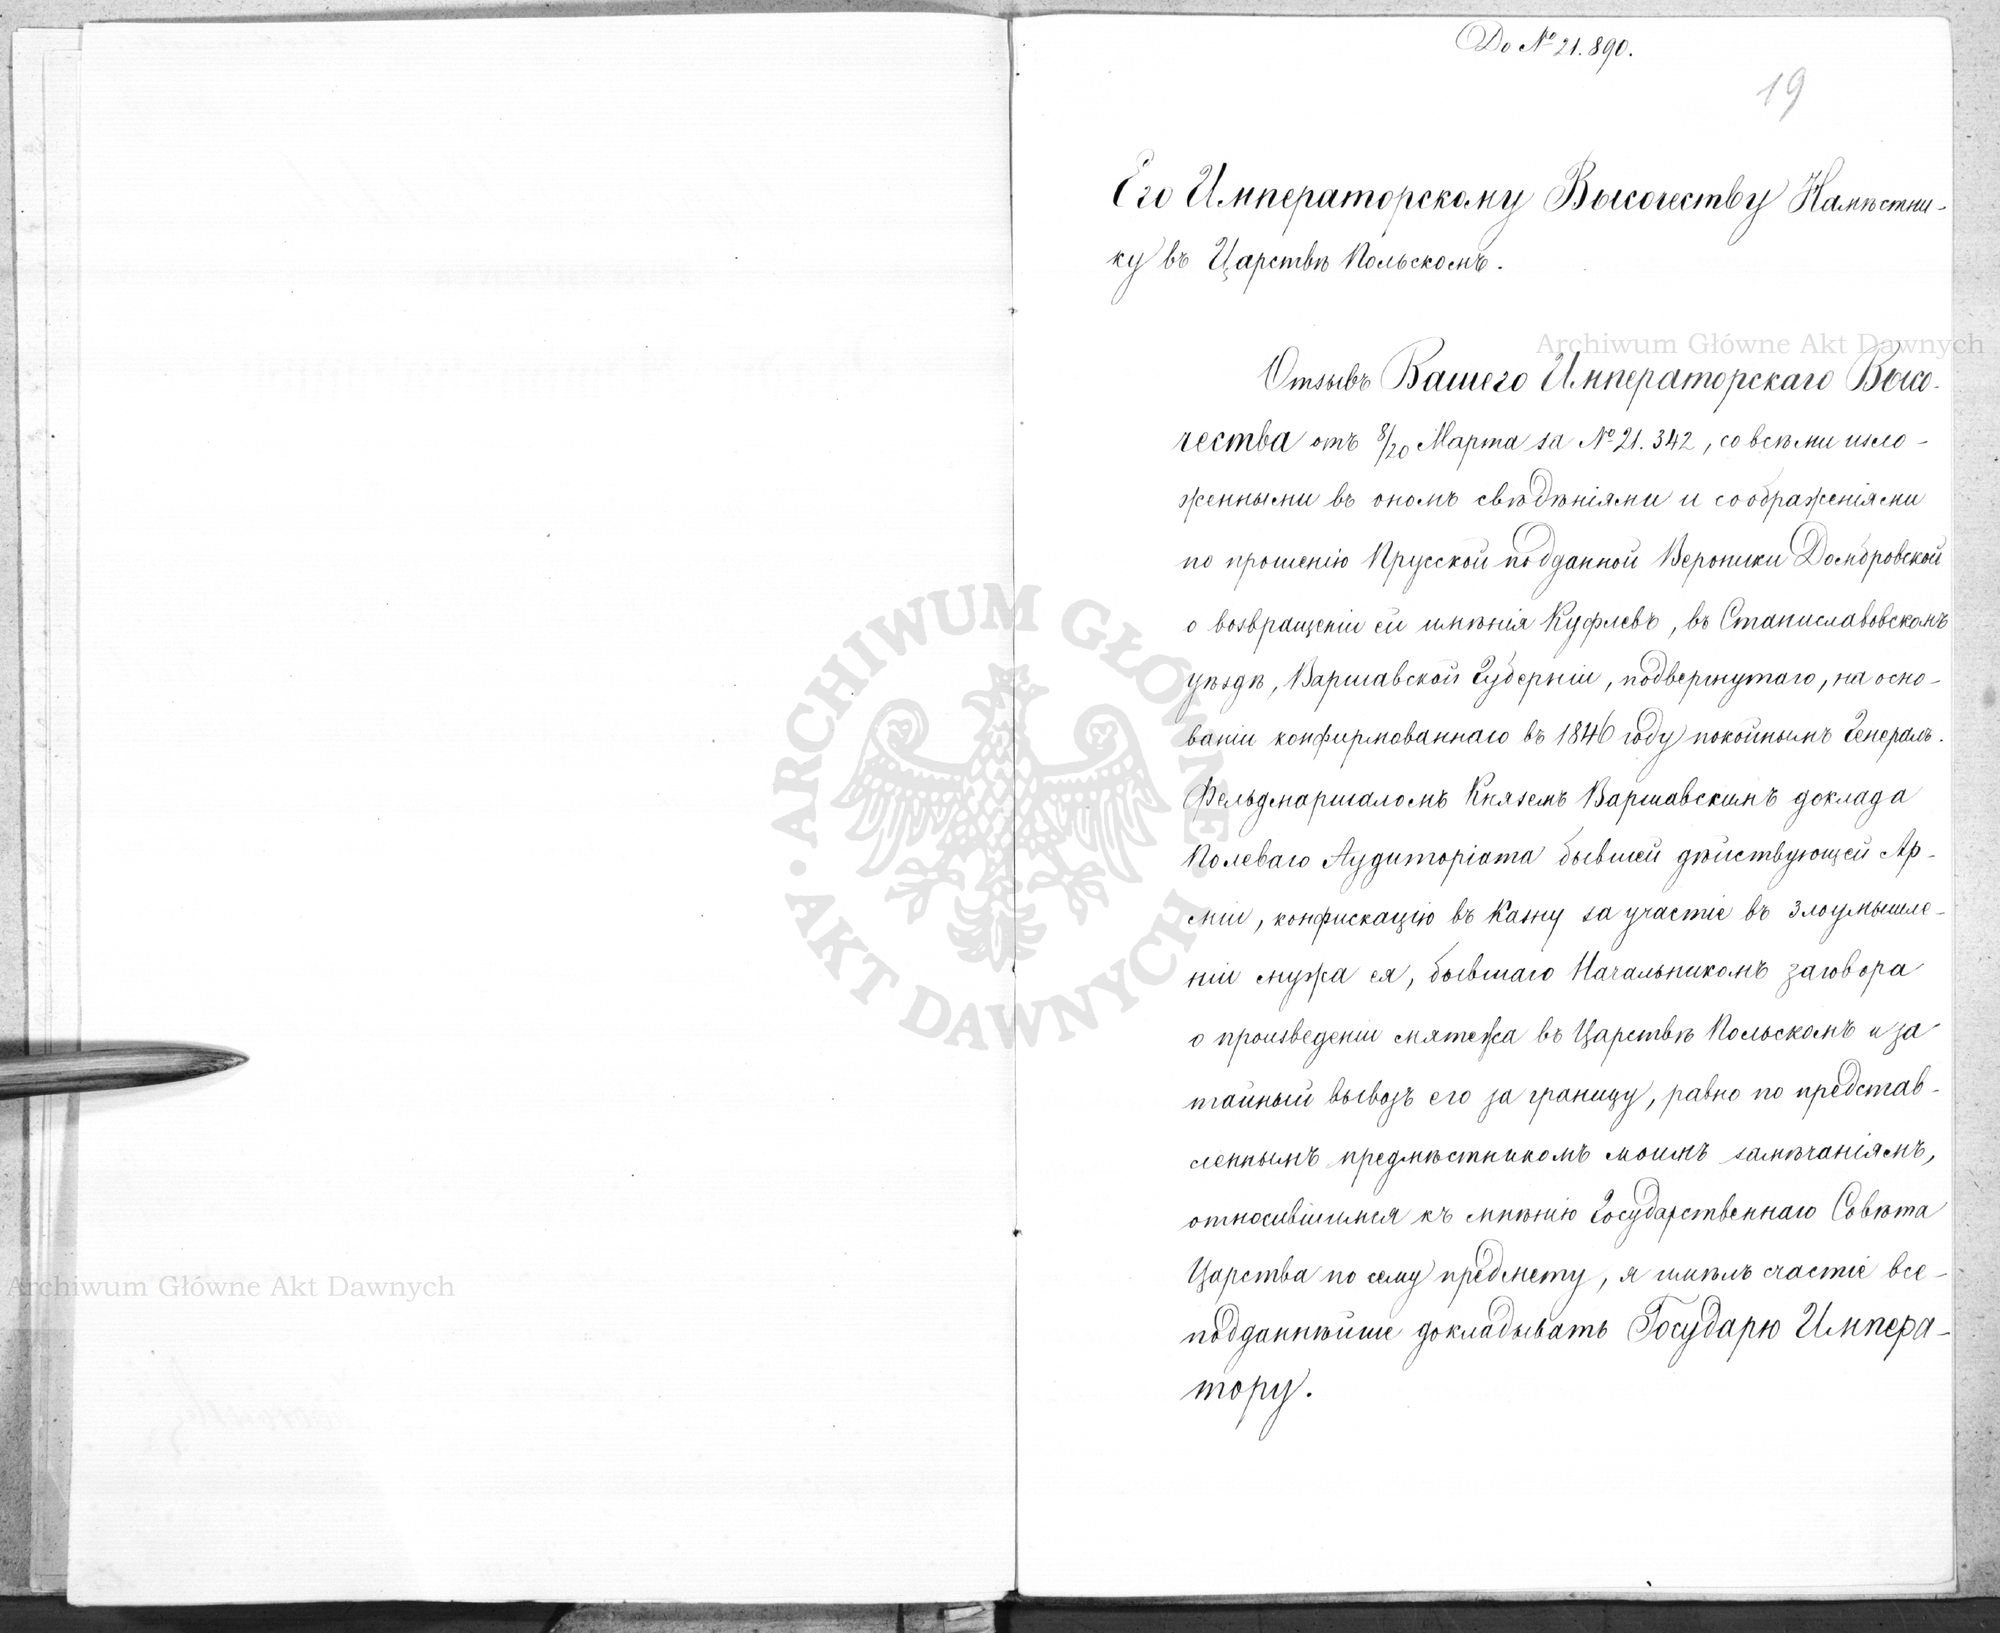 До № 21.890.
19
Его Императорскому Высочеству Намѣстни-
ку въ Царствѣ Польскомъ.
Archiwum Główne Akt Dawnych
Отзывъ Вашего Императорскаго Высо-
чества отъ 8/20 Марта за № 21.342, со всѣми изло-
женными въ ономъ свѣдѣніями и соображеніями
по прошенію Прусской подданной Вероники Домбровской
о возвращеніи ей имѣнія Куфлевъ, въ Станиславовскомъ
уѣздѣ, Варшавской Губерніи, подвергнутаго, на осно-
ваніи конфирмованнаго въ 1846 году покойнымъ Генералъ-
Фельдмаршаломъ Княземъ Варшавскимъ доклада
Полеваго Аудиторіата бывшей дѣйствующей Ар-
міи, конфискаціи въ Казну за участіе въ злоумышле-
ніи мужа ея, бывшаго Начальникомъ заговора
о произведеніи мятежа въ Царствѣ Польскомъ и за
тайный вывозъ его за границу, равно по представ-
леннымъ предмѣстникомъ моимъ замѣчаніямъ,
относившимся къ мнѣнію Государственнаго Совѣта
Царства по сему предмету, я имѣлъ счастіе все-
подданнѣйше докладывать Государю Импера-
тору.
ARCHIWUM GŁÓWNE AKT DAWNYCH
Archiwum Główne Akt Dawnych